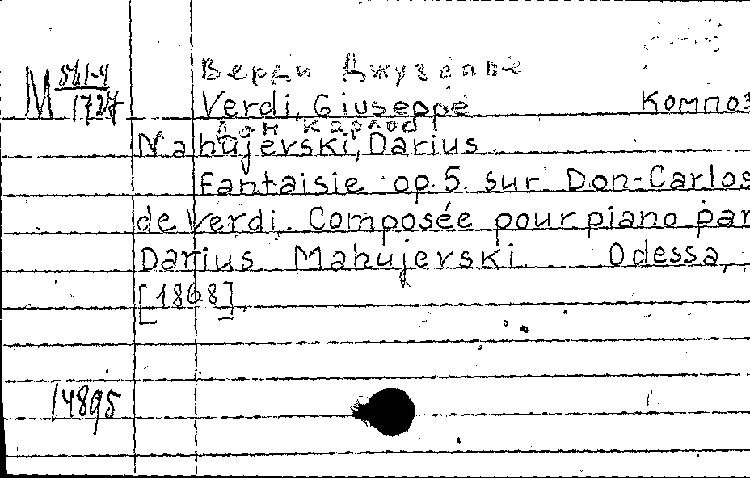 Верди Джузеппе
М 561-4/1727
Verdi, Giuseppe Композ
Дон Карлос
Mahujerski, Darius
Fantaisie op. 5 sur Don-Carlos
de Verdi. Composée pour piano par
Darius Mahujerski Odessa,
[1868]
14895